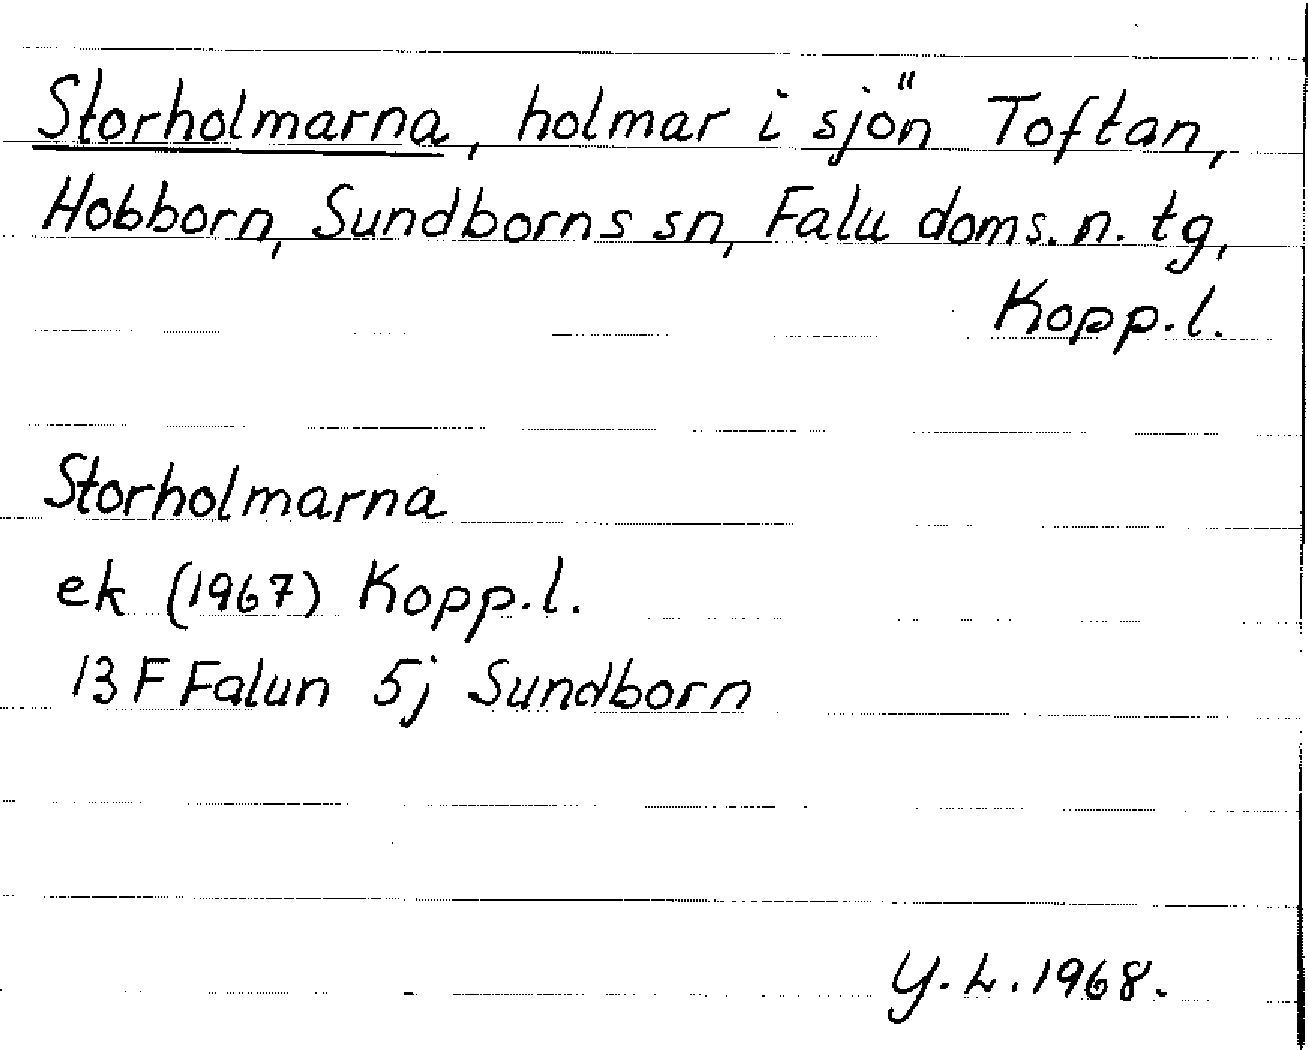 Storholmarna, holmar i sjön Toftan,
Hobborn, Sundborns sn, Falu doms. n. tg,
Kopp.l.
Storholmarna
ek (1967) Kopp.l.
13F Falun 5j Sundborn
Y.L. 1968.